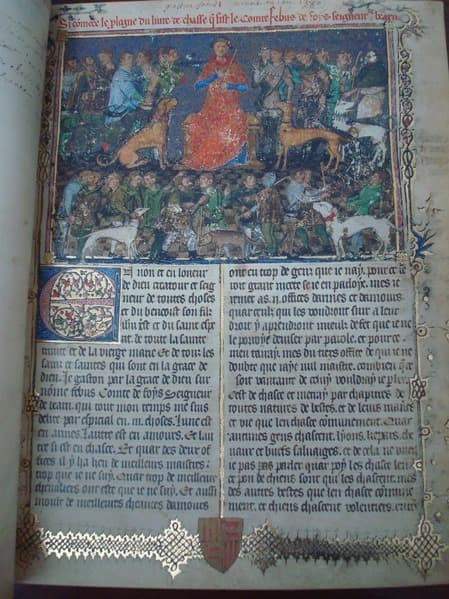 Si comence le plagne du liure de chasse q̃ fist le Comte febus de foys seigneur de bearn
E non et en loneur
de dieu creatour et seig
neur de toutes choses
et du benoist son filz
ihũ crist et du saint esp
erit de toute la sainte
trinite et de la vierge marie Et de tous les
sains et saintes qui sont en la grace de
dieu. Je gaston par la grace de dieu sur
nome febus Comte de foys Seigneur
de bearn, qui tout mon temps me suis
delite par especial en .iii. choses, lune est
en armes, lautre est en amours. Et lau
tre si est en chasce, Et quar des deux of
fices il y ha heu de meilleurs maistres
trop que ie ne suy, Quar trop de meilleurs
cheualiers ont este que ie ne suy, Et aussi
moult de meilleures cheances damours
ont eu trop de gens que ie nay, pour ce se
roit grant nicete se ie en parloye, mes ie
remet ces .ii. offices darmes et damours
quar ceulz qui les voudront suir a leur
droit y aprendront mieulz de fet que ie ne
le porroye deuiser par parole, et pource
men tairay, mes du tiers office de qui ie ne
doubte que iaye nul maistre, combien que ce
soit vantance de celuy vouldray ie parler
C'est de chasce et metray par chapitres de
toutes natures de bestes, et de leurs manieres
et vie que len chasse comunement, Quar
aucunes gens chassent, lyons, liepars, che
uaux et buefs sauuaiges, et de cela ne vueil
ie pas parler quar pou les chasse len
et pou de chiens sont qui les chassent, mes
des autres bestes que len chasse comune
ment, et chiens chassent volentiers,